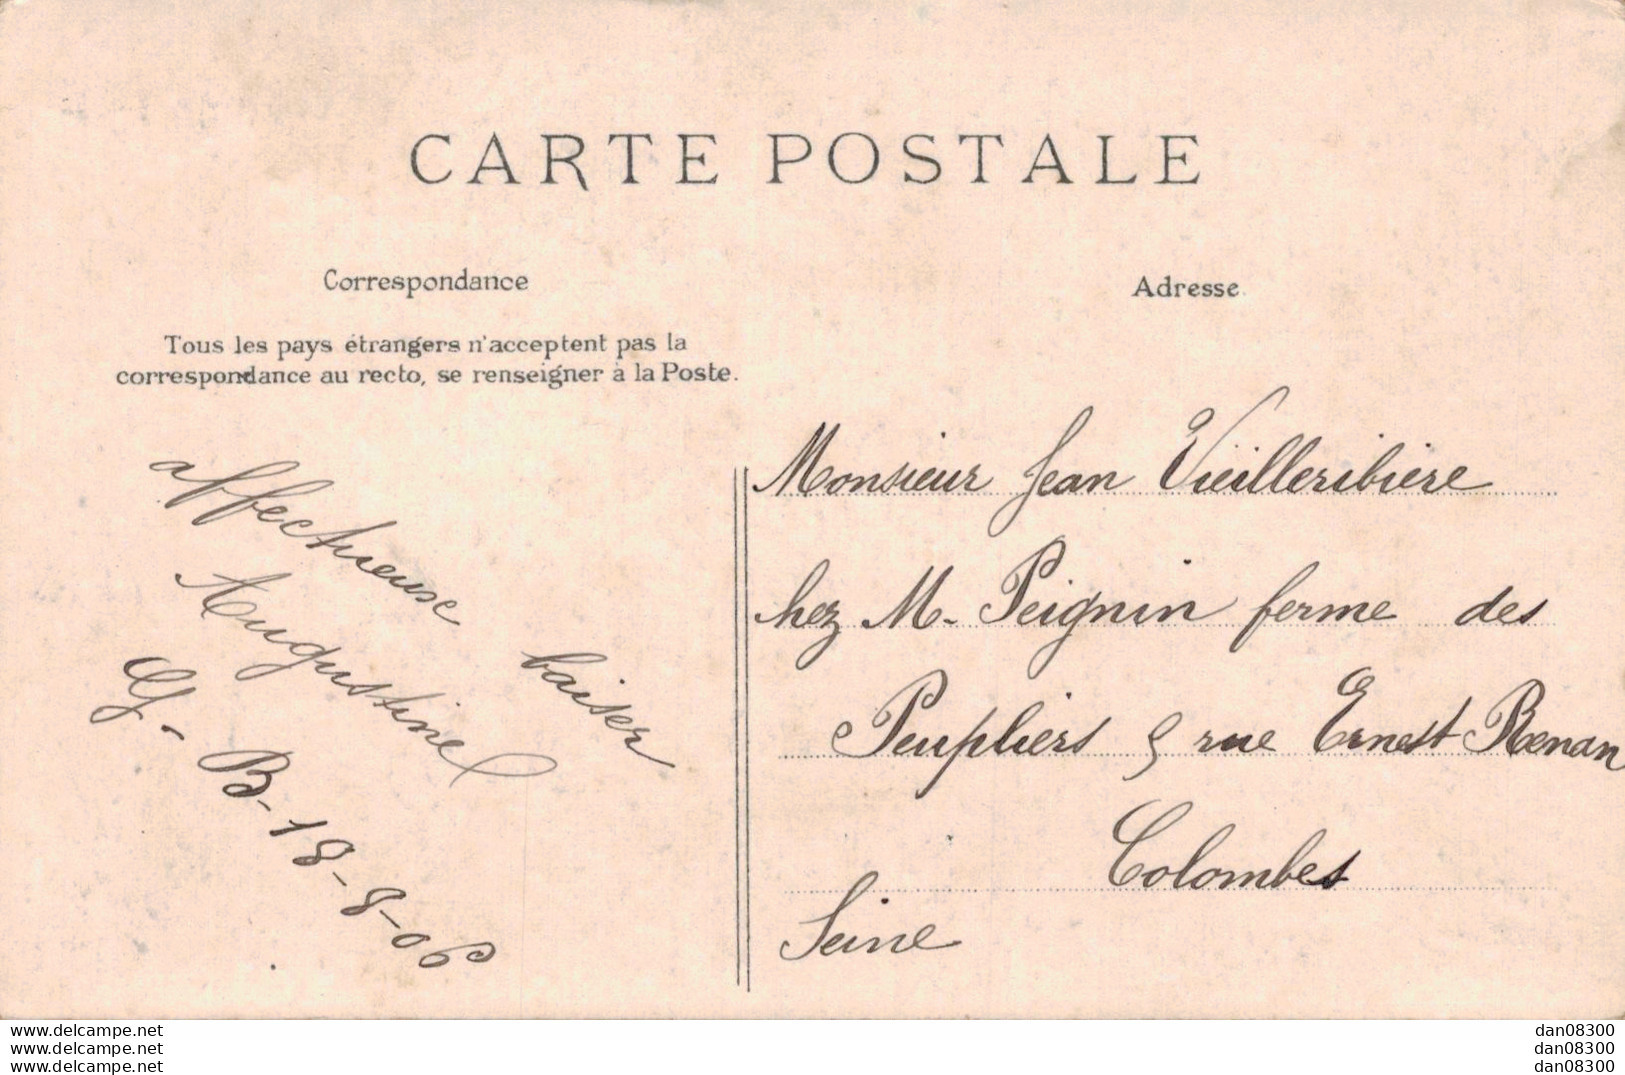 CARTE POSTALE
Correspondance
Tous les pays étrangers n'acceptent pas la
correspondance au recto, se renseigner à la Poste.
affectueuse baiser
Augustine
G. B. 18-8-06
Adresse
Monsieur Jean Vieilleribière
chez M. Peignin ferme des
Peupliers 9 rue Ernest Renan
Colombes
Seine
www.delcampe.net
www.delcampe.net
www.delcampe.net
dan08300
dan08300
dan08300